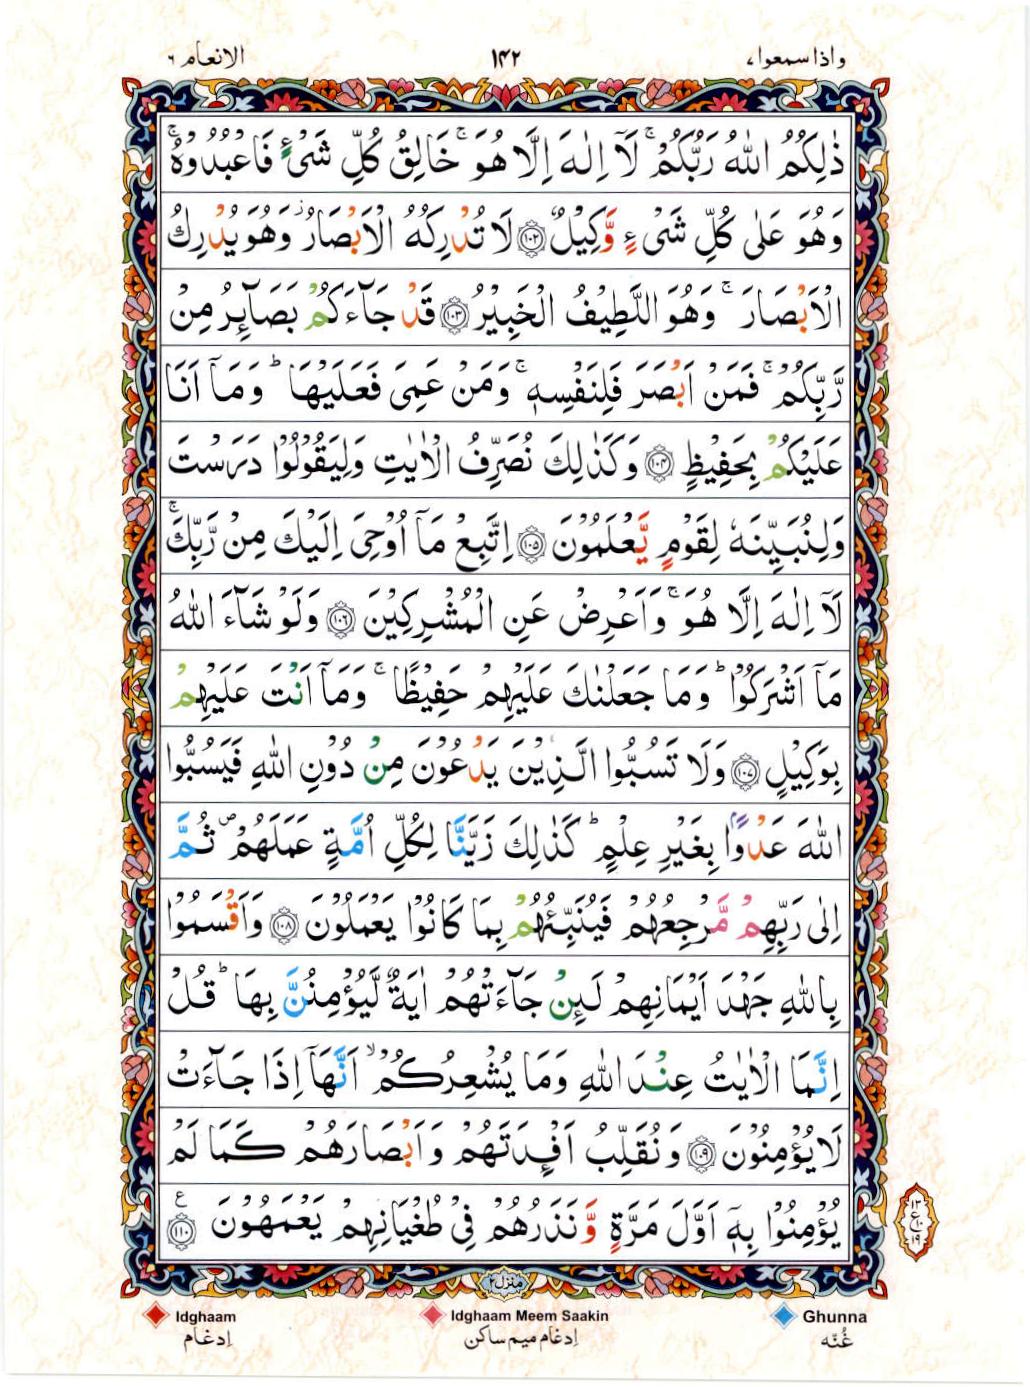 واذا سمعوا ٧ ١٤٢ الانعام ٦
ذٰلِكُمُ اللّٰهُ رَبُّكُمْ ۚ لَاۤ اِلٰهَ اِلَّا هُوَ ۚ خَالِقُ كُلِّ شَیْءٍ فَاعْبُدُوْهُ ۚ
وَهُوَ عَلٰى كُلِّ شَیْءٍ وَّكِیْلٌ ۝١٠٢ لَا تُدْرِكُهُ الْاَبْصَارُ ؗ وَهُوَ یُدْرِكُ
الْاَبْصَارَ ۚ وَهُوَ اللَّطِیْفُ الْخَبِیْرُ ۝١٠٣ قَدْ جَآءَكُمْ بَصَآئِرُ مِنْ
رَّبِّكُمْ ۚ فَمَنْ اَبْصَرَ فَلِنَفْسِهٖ ۚ وَمَنْ عَمِیَ فَعَلَیْهَا ؕ وَمَاۤ اَنَا
عَلَیْكُمْ بِحَفِیْظٍ ۝١٠٤ وَكَذٰلِكَ نُصَرِّفُ الْاٰیٰتِ وَلِیَقُوْلُوْا دَرَسْتَ
وَلِنُبَیِّنَهٗ لِقَوْمٍ یَّعْلَمُوْنَ ۝١٠٥ اِتَّبِعْ مَاۤ اُوْحِیَ اِلَیْكَ مِنْ رَّبِّكَ ۚ
لَاۤ اِلٰهَ اِلَّا هُوَ ۚ وَاَعْرِضْ عَنِ الْمُشْرِكِیْنَ ۝١٠٦ وَلَوْ شَآءَ اللّٰهُ
مَاۤ اَشْرَكُوْا ؕ وَمَا جَعَلْنٰكَ عَلَیْهِمْ حَفِیْظًا ۚ وَمَاۤ اَنْتَ عَلَیْهِمْ
بِوَكِیْلٍ ۝١٠٧ وَلَا تَسُبُّوا الَّذِیْنَ یَدْعُوْنَ مِنْ دُوْنِ اللّٰهِ فَیَسُبُّوا
اللّٰهَ عَدْوًۢا بِغَیْرِ عِلْمٍ ؕ كَذٰلِكَ زَیَّنَّا لِكُلِّ اُمَّةٍ عَمَلَهُمْ ۪ ثُمَّ
اِلٰى رَبِّهِمْ مَّرْجِعُهُمْ فَیُنَبِّئُهُمْ بِمَا كَانُوْا یَعْمَلُوْنَ ۝١٠٨ وَاَقْسَمُوْا
بِاللّٰهِ جَهْدَ اَیْمَانِهِمْ لَىِٕنْ جَآءَتْهُمْ اٰیَةٌ لَّیُؤْمِنُنَّ بِهَا ؕ قُلْ
اِنَّمَا الْاٰیٰتُ عِنْدَ اللّٰهِ وَمَا یُشْعِرُكُمْ ۙ اَنَّهَاۤ اِذَا جَآءَتْ
لَا یُؤْمِنُوْنَ ۝١٠٩ وَنُقَلِّبُ اَفْـِٕدَتَهُمْ وَاَبْصَارَهُمْ كَمَا لَمْ
یُؤْمِنُوْا بِهٖۤ اَوَّلَ مَرَّةٍ وَّنَذَرُهُمْ فِیْ طُغْیَانِهِمْ یَعْمَهُوْنَ ۝١١٠ ع
١٣
ع
١٩
منزل ٢
Idghaam Idghaam Meem Saakin Ghunna
اِدغام اِدغام میم ساكن غُنّه